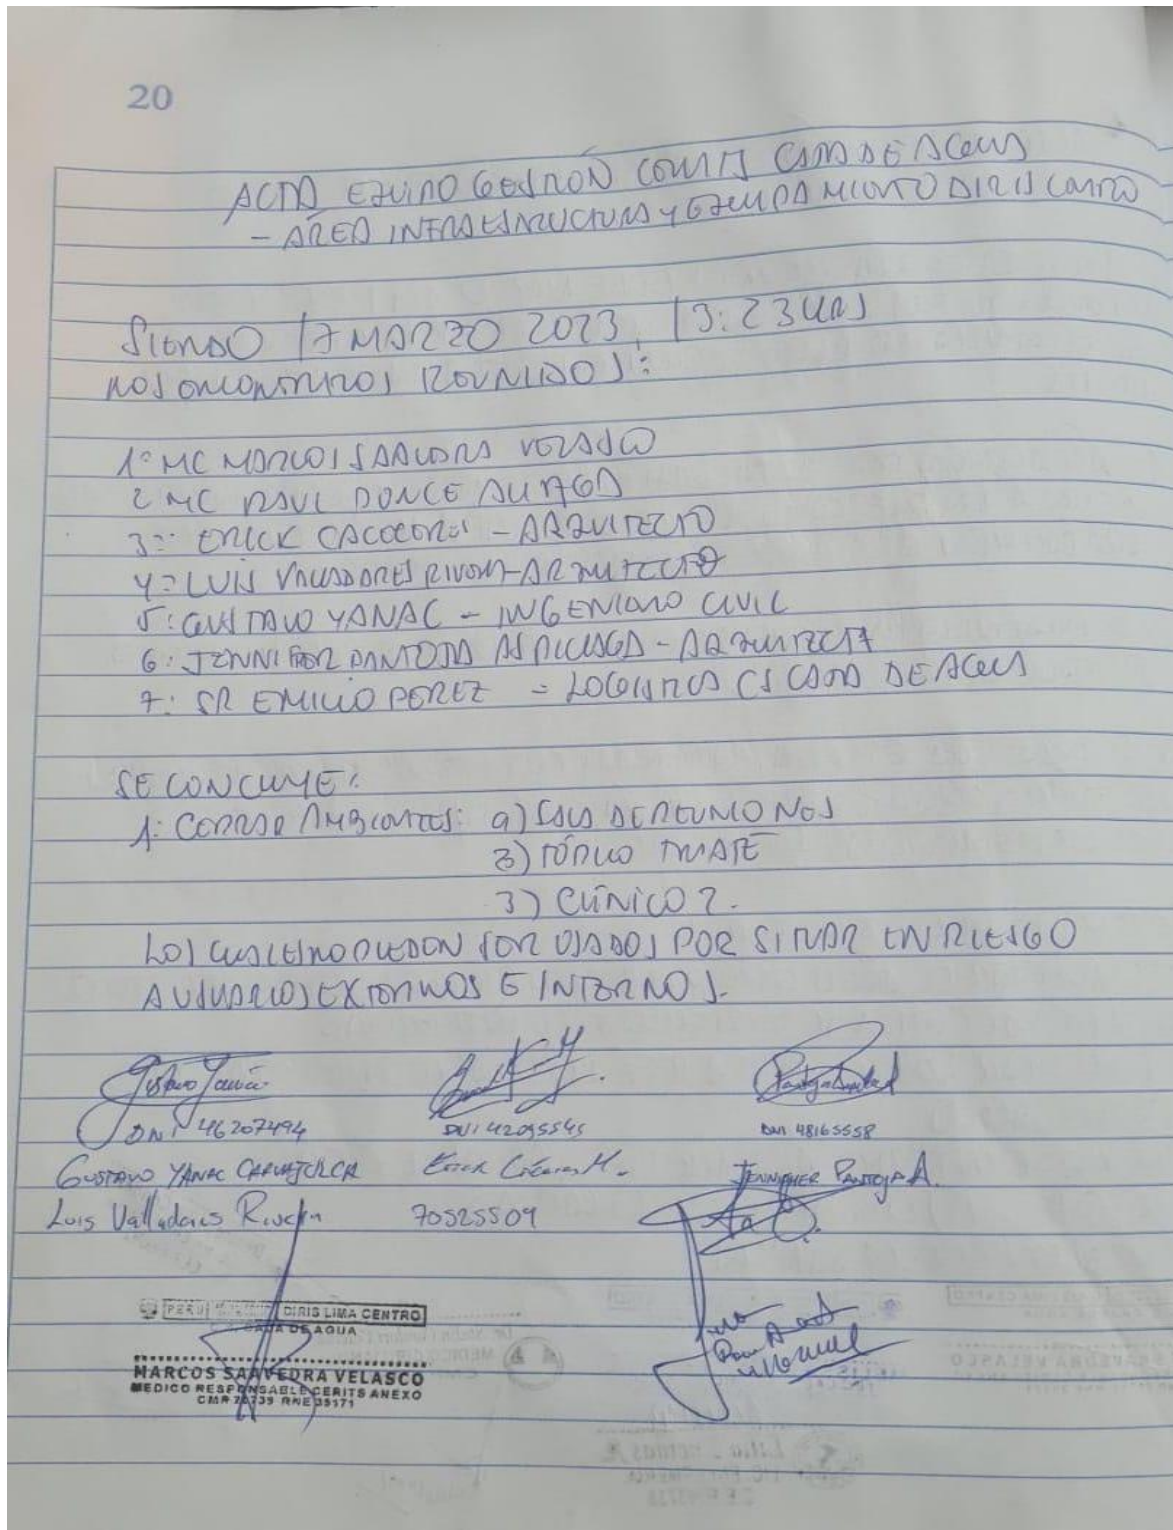 20
ACTA EQUIPO GESTIÓN CON CS CASA DE AGUA
- ÁREA INFRAESTRUCTURA Y EQUIPAMIENTO DIRIS CENTRO
SIENDO 17 MARZO 2023, 13:23 HRS
NOS ENCONTRAMOS REUNIDOS:
1º MC MARCOS SAAVEDRA VELASCO
2 MC RAUL PONCE
3: ERICK - ARQUITECTO
4: LUIS VALLADARES RIVERA - ARQUITECTO
5: GUSTAVO YANAC - INGENIERO CIVIL
6: JENNIFER PANTOJA - ARQUITECTA
7: SR EMILIO PEREZ - LOGISTICA CS CASA DE AGUA
SE CONCLUYE:
1: CERRAR AMBIENTES: a) SALA DE REUNIONES
TÓPICO
3) CLÍNICO 2.
LOS CUALES NO PUEDEN SER USADOS POR SITUAR EN RIESGO
A USUARIOS EXTERNOS E INTERNOS.
DNI 46207494 DNI 42095545 DNI 48165558
GUSTAVO YANAC Erick JENNIPHER PANTOJA A.
Luis Valladares Rivera 70525509
PERÚ DIRIS LIMA CENTRO
CASA DE AGUA
MARCOS SAAVEDRA VELASCO
MEDICO RESPONSABLE CERITS ANEXO
CMP 72739 RNE 35171